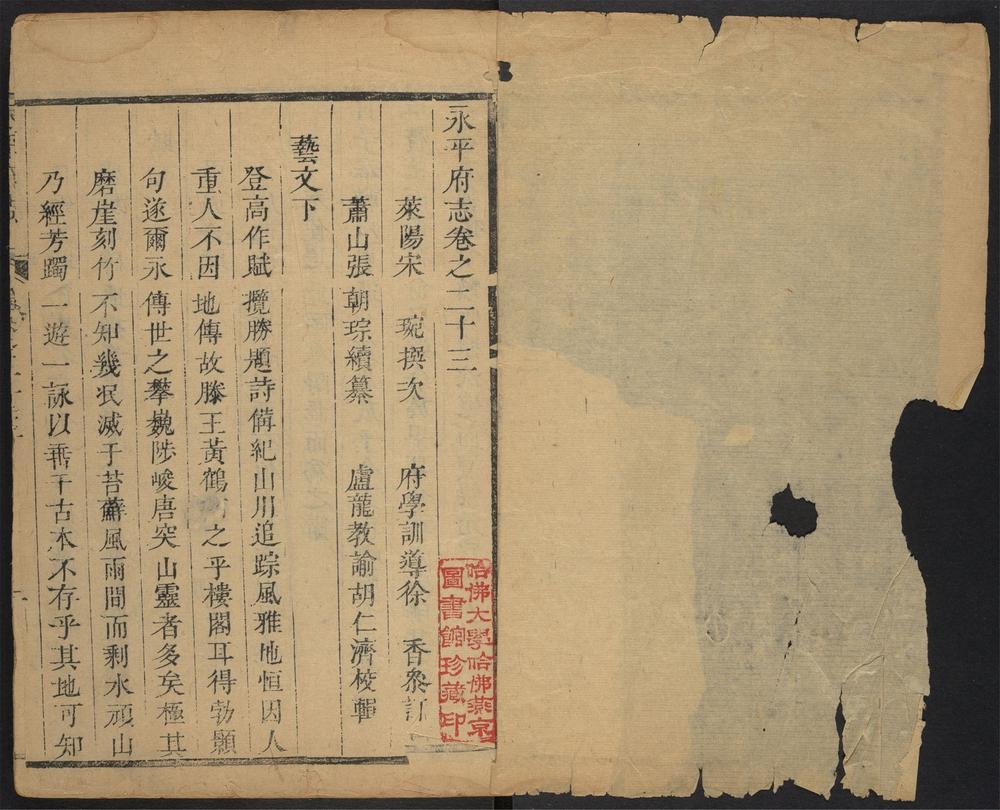 永平府志卷之二十三
萊陽宋 琬撰次 府學訓導徐 香叅訂
蕭山張 朝琮續纂 盧龍教諭胡仁濟校輯
藝文下
登高作賦攬勝題詩備紀山川追踪風雅地恒因人
重人不因地傳故滕王黃鶴 之乎樓閣耳得勃顥
句遂爾永傳世之攀巍陟峻唐突山靈者多矣極其
磨崖刻竹不知幾泯滅于苔蘚風雨間而剩水頑山
乃經芳躅一遊一詠以垂千古本不存乎其地可知
哈佛大學哈佛燕京
圖書館珍藏印